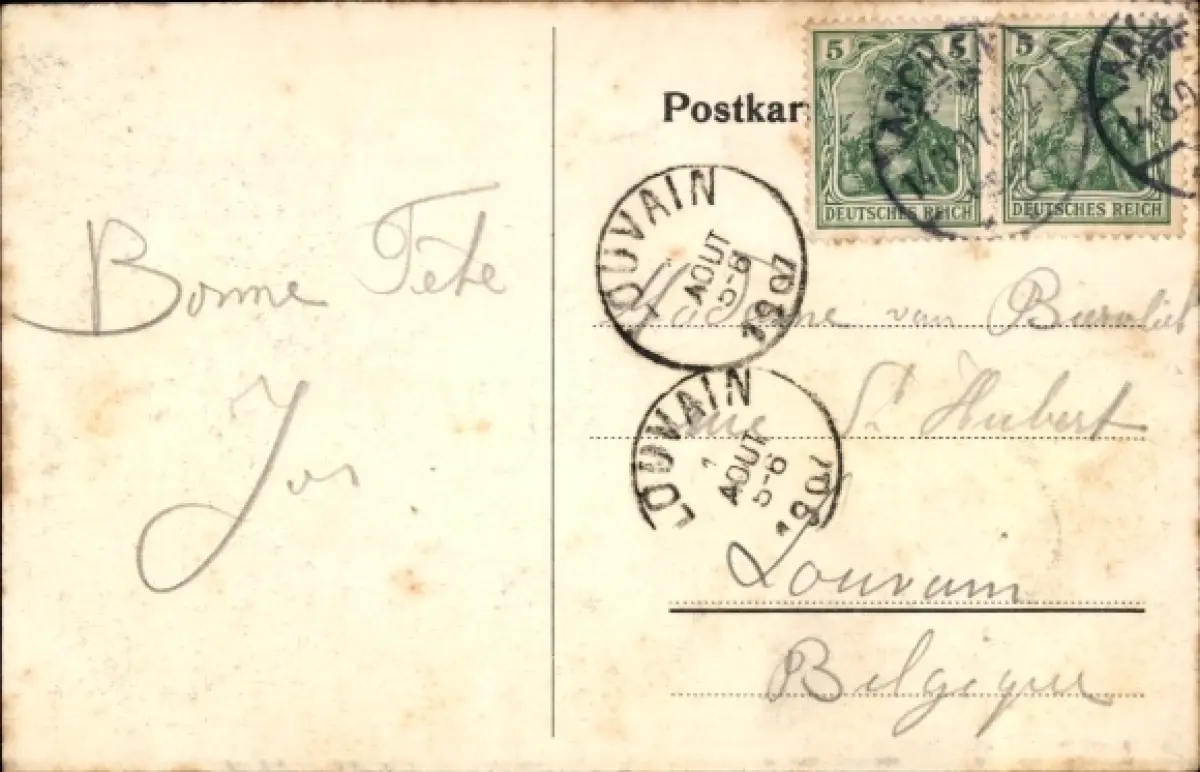 Bonne Fete
Jos
Postkar
5 5
DEUTSCHES REICH
5
DEUTSCHES REICH
AACHEN
14.8.07
AAC
14.8.0
LOUVAIN
AOUT
5-6
1907
Madame van
Rue St Hubert
LOUVAIN
1
AOUT
5-6
1907
Louvain
Belgique